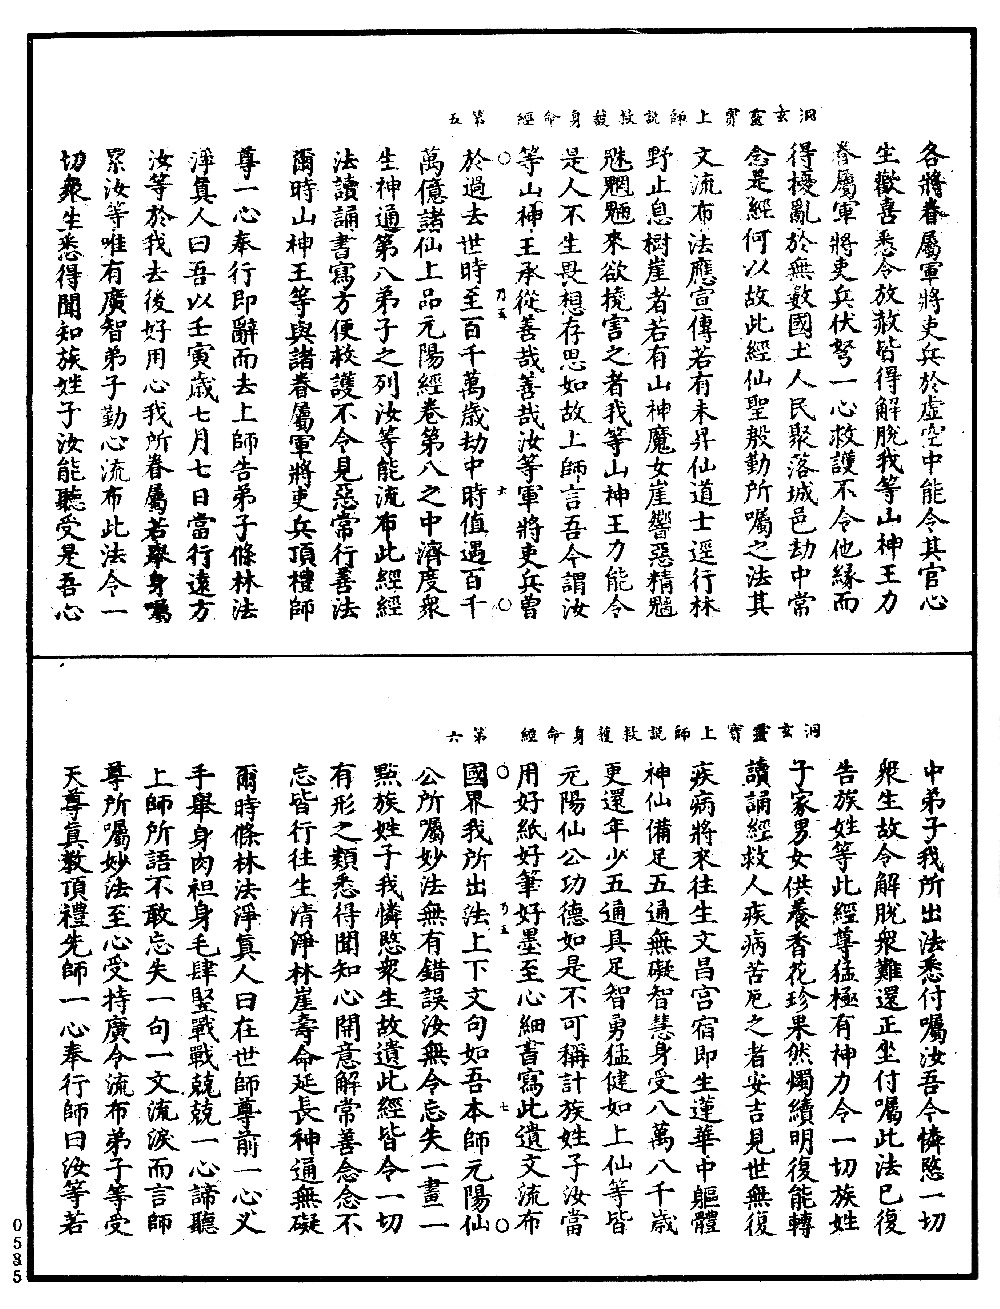 洞玄靈寶上師說救護身命經　第五
各將眷屬軍將吏兵於虛空中能令其官心
生歡喜悉令放赦皆得解脫我等山神王力
眷屬軍將吏兵伏弩一心救護不令他緣而
得擾亂於無數國土人民聚落城邑劫中常
念是經何以故此經仙聖殷勤所囑之法其
文流布法應宣傳若有未昇仙道士逕行林
野止息樹崖者若有山神魔女崖響惡精魑
魅魍魎來欲撓害之者我等山神王力能令
是人不生畏想存思如故上師言吾今謂汝
等山神王承從善哉善哉汝等軍將吏兵曾
乃五　六
於過去世時至百千萬歲劫中時值遇百千
萬億諸仙上品元陽經卷第八之中濟度衆
生神通第八弟子之列汝等能流布此經經
法讀誦書寫方便救護不令見惡常行善法
爾時山神王等與諸眷屬軍將吏兵頂禮師
尊一心奉行即辭而去上師告弟子條林法
淨真人曰吾以壬寅歲七月七日當行遠方
汝等於我去後好用心我所眷屬若舉身囑
累汝等唯有廣智弟子勤心流布此法令一
切衆生悉得聞知族姓子汝能聽受是吾心
洞玄靈寶上師說救護身命經　第六
中弟子我所出法悉付囑汝吾今憐愍一切
衆生故令解脫衆難還正坐付囑此法已復
告族姓等此經尊猛極有神力令一切族姓
子家男女供養香花珍果然燭續明復能轉
讀誦經救人疾病苦厄之者安吉見世無復
疾病將來往生文昌宮宿即生蓮華中軀體
神仙備足五通無礙智慧身受八萬八千歲
更還年少五通具足智勇猛健如上仙等皆
元陽仙公功德如是不可稱計族姓子汝當
用好紙好筆好墨至心細書寫此遺文流布
乃五　七
國界我所出法上下文句如吾本師元陽仙
公所囑妙法無有錯誤汝無令忘失一畫一
點族姓子我憐愍衆生故遺此經皆令一切
有形之類悉得聞知心開意解常善念念不
忘皆行往生清淨林崖壽命延長神通無礙
爾時條林法淨真人曰在世師尊前一心叉
手舉身肉袒身毛肆豎戰戰兢兢一心諦聽
上師所語不敢忘失一句一文流淚而言師
尊所囑妙法至心受持廣令流布弟子等受
天尊真教頂禮先師一心奉行師曰汝等若
0535